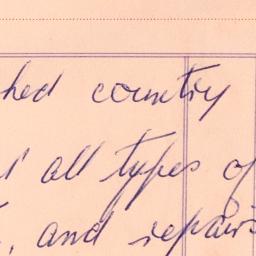 hed country
all types of
, and repairs